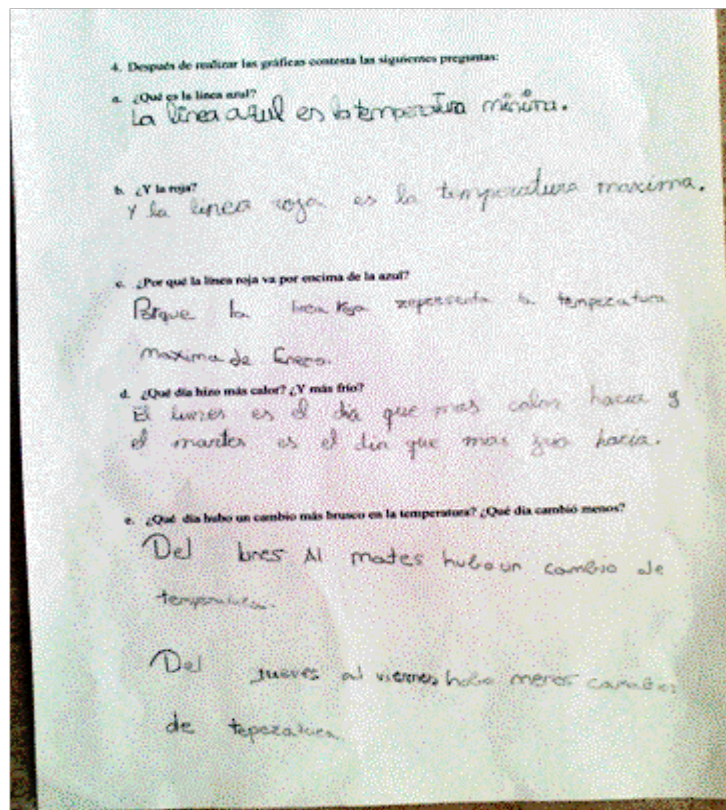 4. Después de realizar las gráficas contesta las siguientes preguntas:
a. ¿Qué es la línea azul?
La línea azul es la temperatura mínima.
b. ¿Y la roja?
Y la linea roja es la temperatura maxima.
c. ¿Por qué la línea roja va por encima de la azul?
Porque la linea roja representa la temperatura
maxima de Enero.
d. ¿Qué día hizo más calor? ¿Y más frío?
El lunes es el dia que mas calor hacia y
el martes es el dia que mas frio hacia.
e. ¿Qué día hubo un cambio más brusco en la temperatura? ¿Qué día cambió menos?
Del lunes Al mates hubo un cambio de
temperatura.
Del jueves al viernes hubo menos cambios
de tepezatura